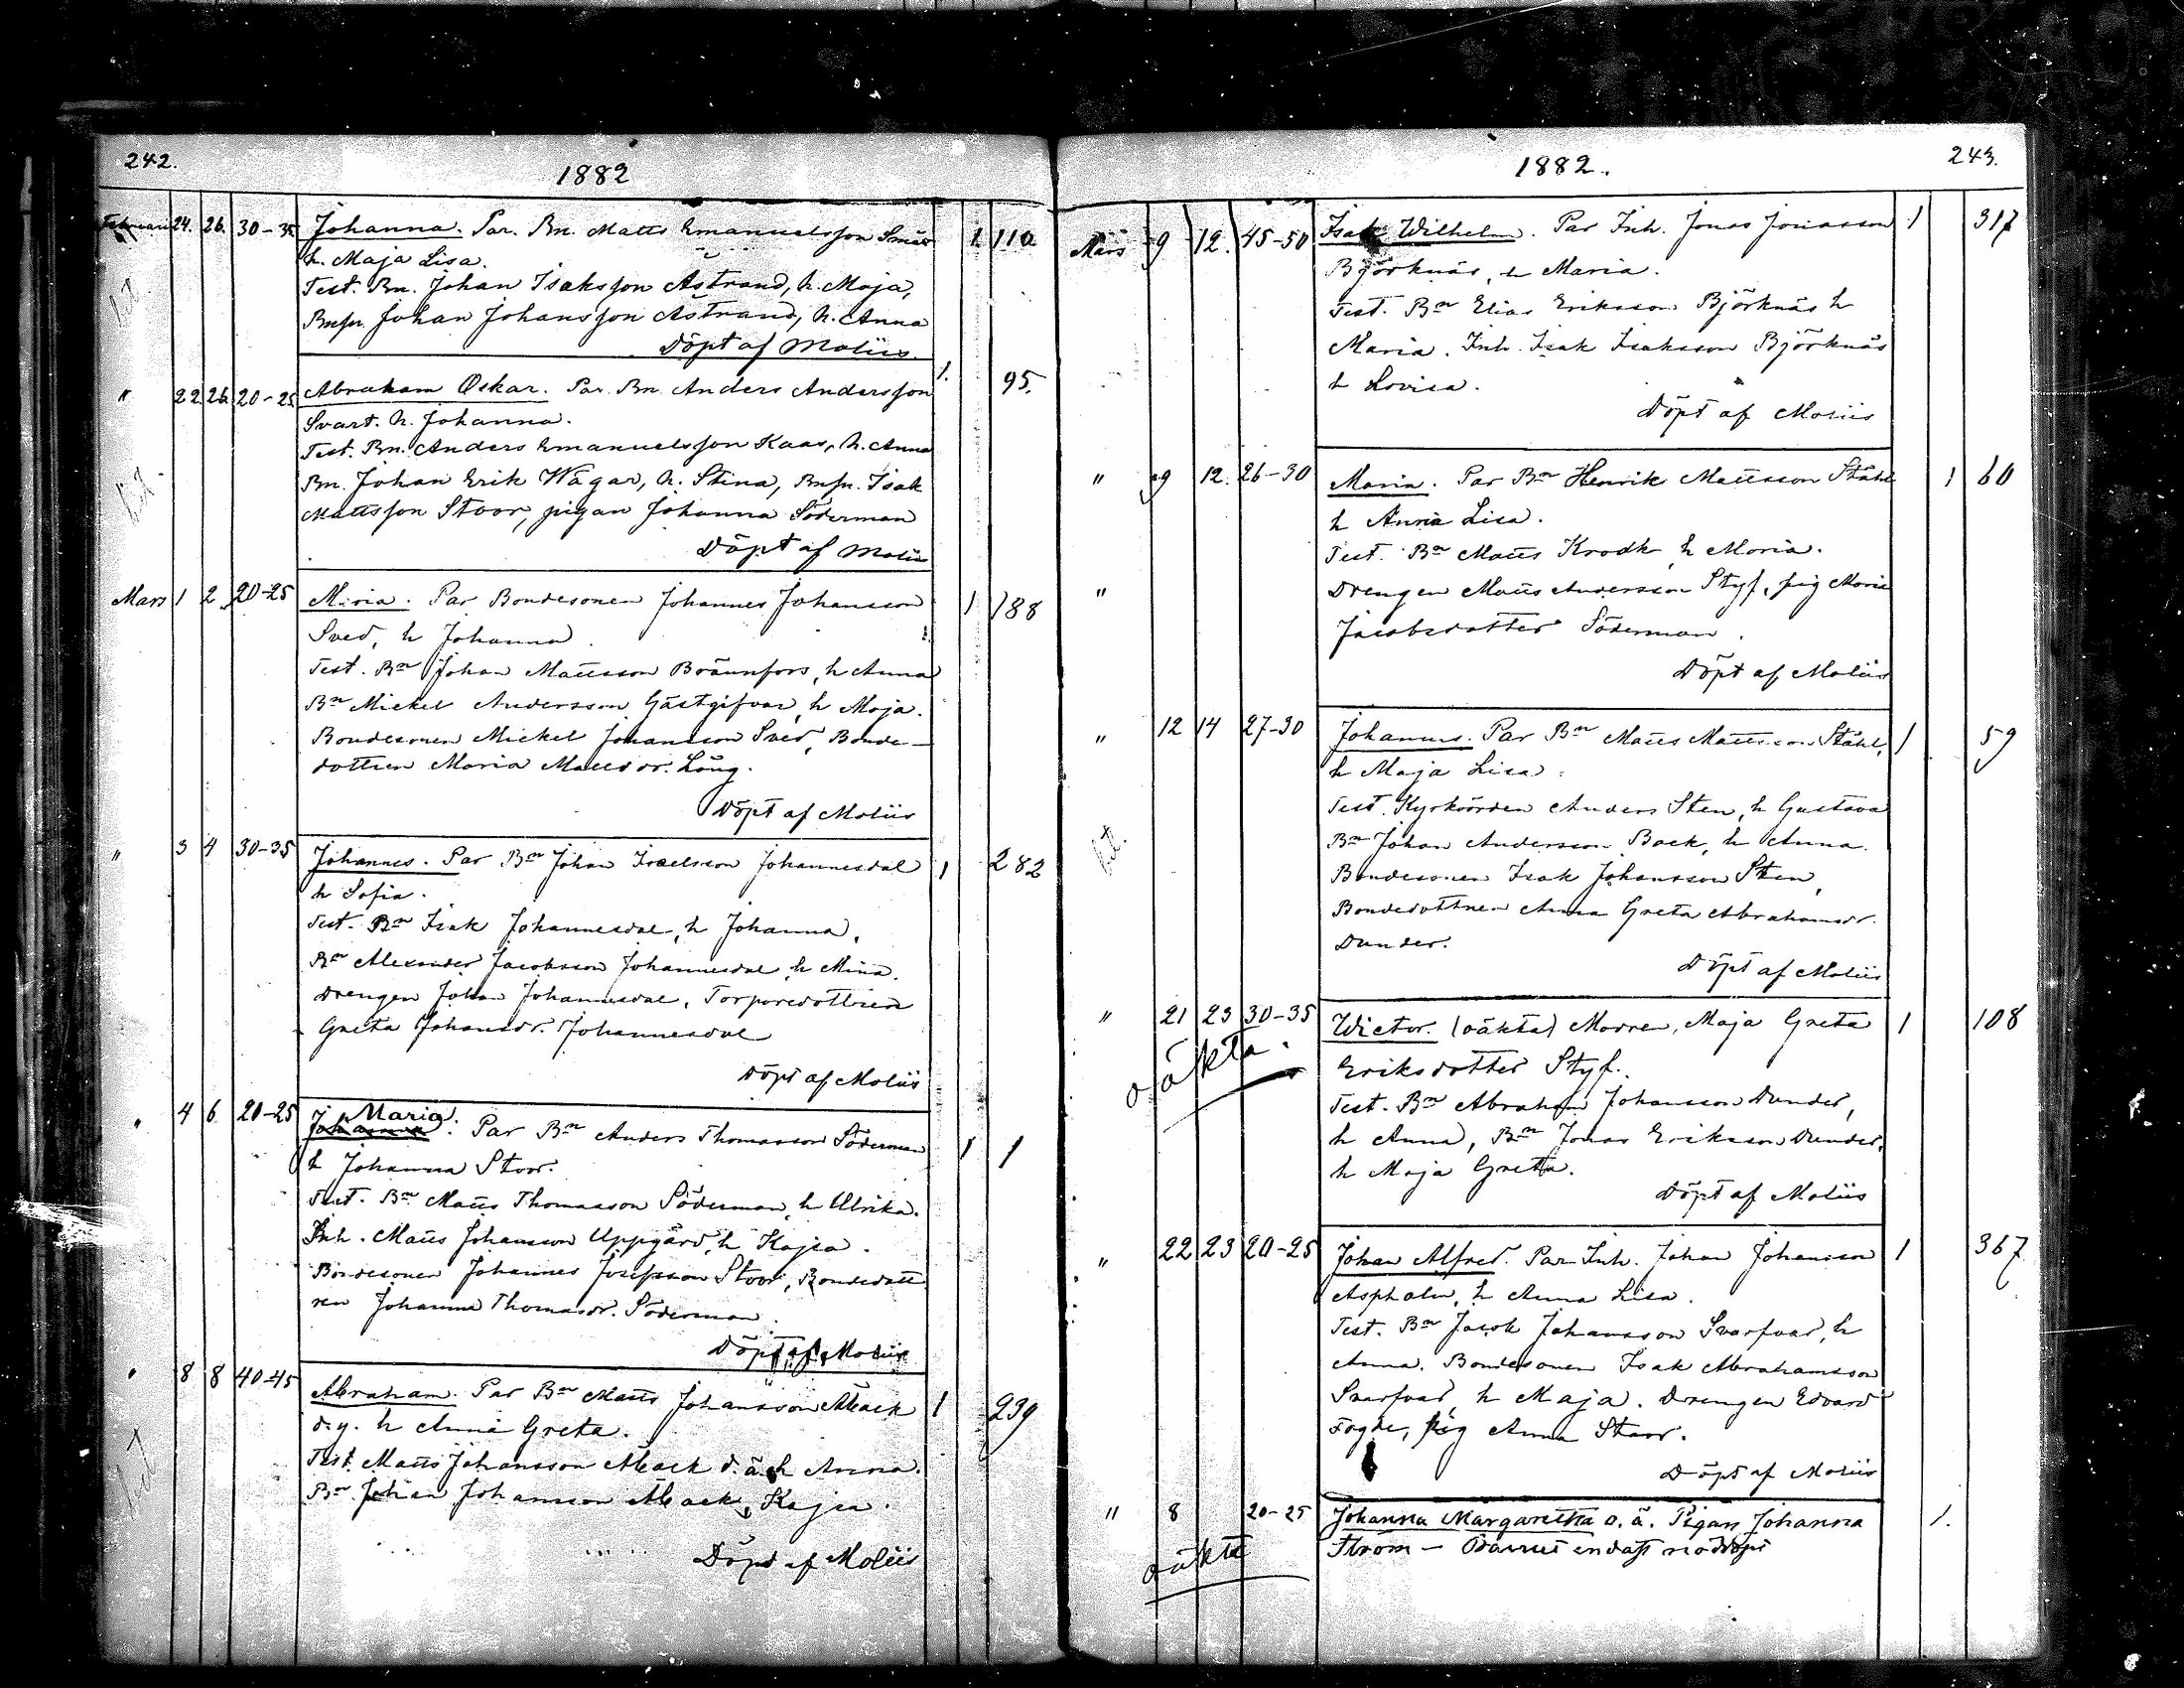 242.
1882
Februari 24. 26. 30-35 Johanna. Par. Bn. Matts Emanuelsson Smås 1 110
h. Maja Lisa.
Test. Bn. Johan Isaksson Åstrand, h. Maja,
Bnsn. Johan Johansson Åstrand, h. Anna
Döpt af Moliis.
" 22 26 20-25 Abraham Oskar. Par. Bn. Anders Andersson 1. 95.
Svart. h. Johanna.
Test. Bn. Anders Emanuelsson Kaas, h. Anna
Bn. Johan Erik Wägar, h. Stina, Bnsn. Isak
Mattsson Stoor, pigan Johanna Söderman
Döpt af Moliis
Mars 1 2 20-25 Maria. Par Bondesonen Johannes Johansson 1 188
Sved, h Johanna.
Test. Bn Johan Mattsson Brännfors, h Anna
Bn Mickel Andersson Gästgifvar, h Maja.
Bondesonen Mickel Johansson Sved, Bonde-
dottren Maria Mattsdr. Lång.
Döpt af Moliis
" 3 4 30-35 Johannes. Par Bn Johan Israelsson Johannesdal 1 282
h Sofia.
Test. Bn Isak Johannesdal, h Johanna,
Bn Alexander Jacobsson Johannesdal, h Mina.
Drengen Johan Johannesdal, Torparedottren
Greta Johansdr. Johannesdal
Döpt af Moliis
" 4 6 20-25 Maria
Johanna. Par Bn Anders Thomasson Söderman 1 1
h Johanna Stoor.
Test. Bn Matts Thomasson Söderman, h Ulrika.
Inh. Matts Johansson Uppgård, h Kajsa.
Bondesonen Johannes Josefsson Stoor, Bondedott
ren Johanna Thomasdr. Söderman.
Döpt af Moliis
" 8 8 40-45 Abraham. Par Bn Matts Johansson Aback 1 239
d.y. h Anna Greta.
Test. Matts Johansson Aback d.ä. h Anna.
Bn Johan Johansson Aback, Kajsa.
Döpt af Moliis
243.
1882.
Mars 9 12. 45-50 Isak Wilhelm. Par Inh. Jonas Jonasson 1 317
Björknäs, h Maria.
Test. Bn Elias Eriksson Björknäs h
Maria. Inh. Isak Isaksson Björknäs
h Lovisa.
Döpt af Moliis
" 9 12. 26-30 Maria. Par Bn Henrik Mattsson Ståhl 1 60
h Anna Lisa.
Test. Bn Matts Krook, h Maria.
" Drengen Matts Andersson Styf, pig Maria
Jacobsdotter Söderman.
Döpt af Moliis
" 12 14 27-30 Johannes. Par Bn Matts Mattsson Ståhl, 1 59
h Maja Lisa.
Test. Kyrkvärden Anders Sten, h Gustava
Bn Johan Andersson Back, h Anna.
Bondesonen Isak Johansson Sten,
Bondedottren Anna Greta Abrahamsdr.
Dunder.
Döpt af Moliis
" 21 23 30-35 Wictor. (oäkta) Modren, Maja Greta 1 108
oäkta.
Eriksdotter Styf.
Test. Bn Abraham Johansson Dunder,
h Anna, Bn Jonas Eriksson Dunder,
h Maja Greta.
Döpt af Moliis
" 22 23 20-25 Johan Alfred. Par Inh. Johan Johansson 1 367
Aspholm, h Anna Lisa.
Test. Bn Jacob Johansson Svarfvar, h
Anna. Bondesonen Isak Abrahamsson
Svarfvar, h Maja. Drengen Edvard
Fogde, pig Anna Stoor.
Döpt af Moliis
" 8 20-25 Johanna Margaretha o.ä. Pigan Johanna 1.
oäkta
Ström - Barnet endast nöddöpt